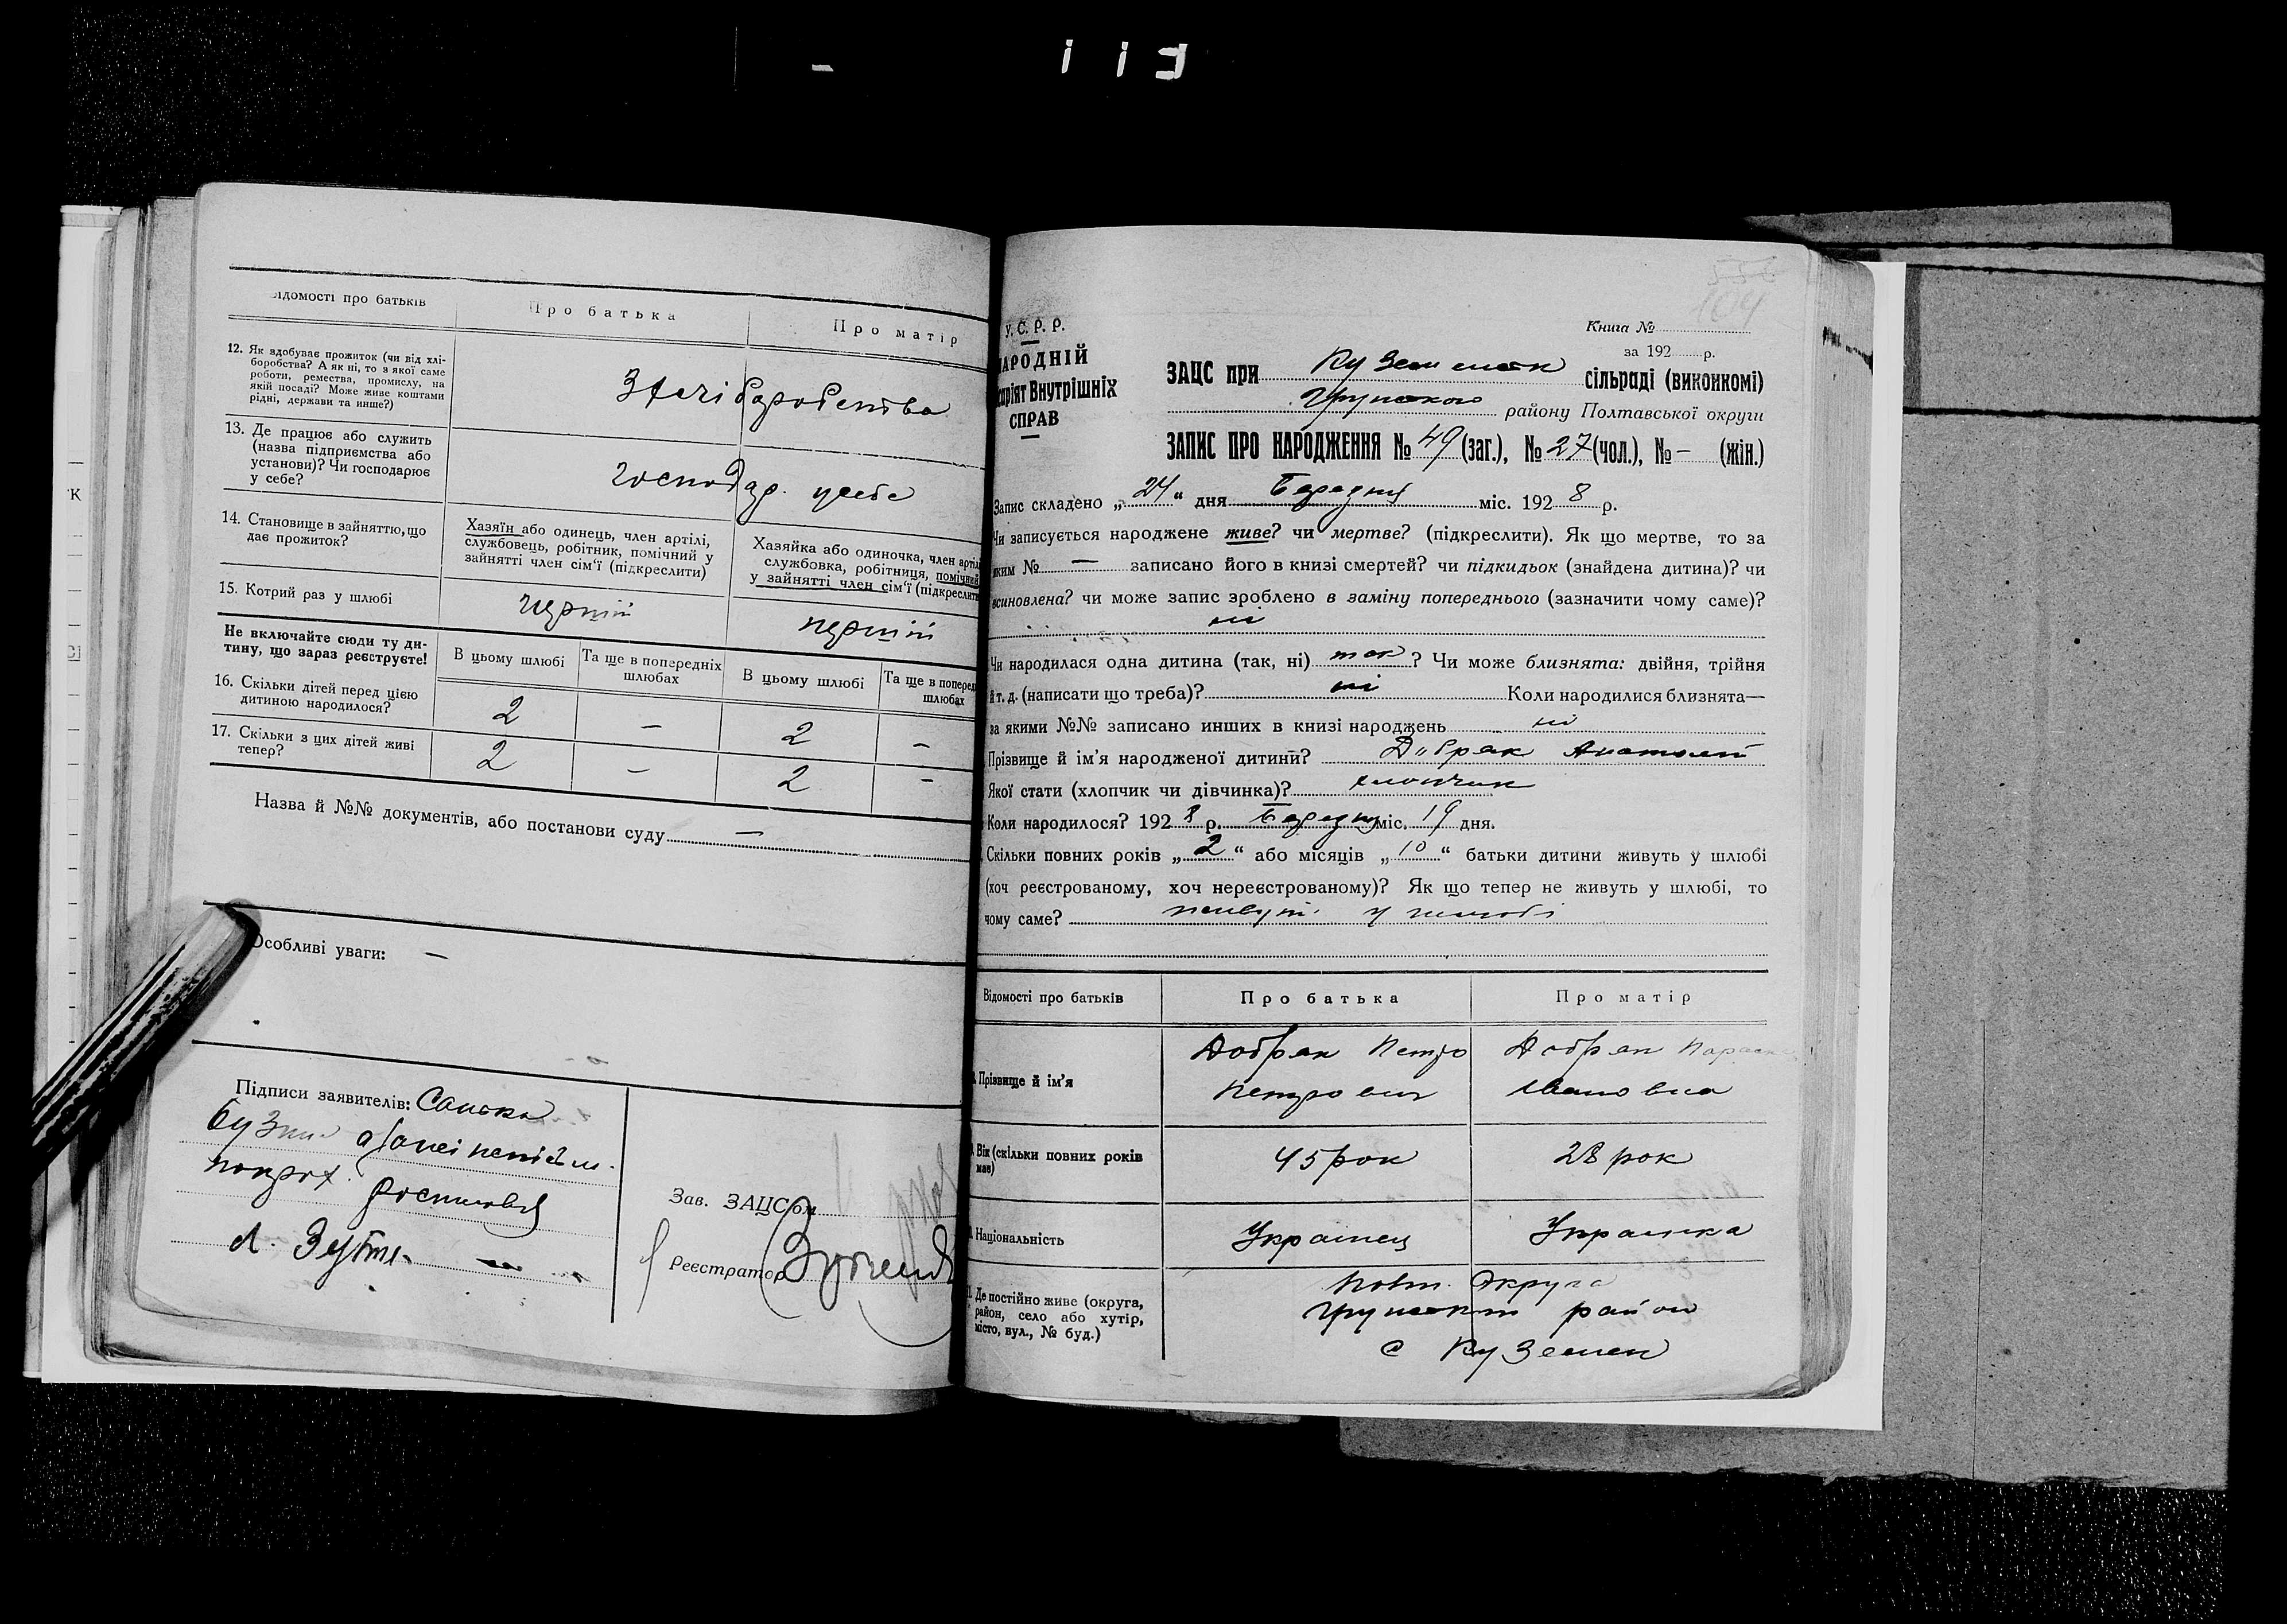 113
Відомості про батьків
Про батька
Про матір
12. Як вдобуває прожиток (чи від хлі-
боробства? А як ні, то з якої саме
роботи, ремества, промислу, на
якій посаді? Може живе коштами
рідні, держави та инше?)
З хліборобства
13. Де працює або служить
(назва підприємства або
установи)? Чи господарює
у себе?
господар. у себе
14. Становище в зайняттю, що
дає прожиток?
Хазяїн або одинець, член артілі,
службовець, робітник, помічний у
зайнятті член сім'ї (підкреслити)
Хазяйка або одиночка, член артілі
службовка, робітниця, помічний
у зайнятті член сім'ї (підкреслити
15. Котрий раз у шлюбі
перший
перший
Не включайте сюди ту ди-
тину, що зараз реєструєте!
В цьому шлюбі
Та ще в попередніх
шлюбах
В цьому шлюбі
Та ще в поперед
шлюбах
16. Скільки дітей перед цією
дитиною народилося?
2 – 2 –
17. Скільки з цих дітей живі
тепер?
2 – 2 –
Назва й №№ документів, або постанови суду –
Особливі уваги: –
Підписи заявителів:
Зав. ЗАЦС'ом
Реєстратор
554
104
У. С. Р. Р.
НАРОДНІЙ
Внутрішніх
СПРАВ
Книга №
за 192 р.
ЗАЦС при Куземенск сільраді (виконкомі)
Грунського району Полтавської округи
ЗАПИС ПРО НАРОДЖЕННЯ № 49 (заг.), № 27 (чол.), № – (жін.)
Запис складено „24“ дня Березня міс. 1928 р.
Чи записується народжене живе? чи мертве? (підкреслити). Як що мертве, то за
яким № – записано його в книзі смертей? чи підкидьок (знайдена дитина)? чи
всиновлена? чи може запис зроблено в заміну попереднього (зазначити чому саме)?
ні
Чи народилася одна дитина (так, ні) так? Чи може близнята: двійня, трійня
й т. д. (написати що треба)? ні Коли народилися близнята—
за якими №№ записано инших в книзі народжень ні
Прізвище й ім'я народженої дитини? Добряк Анатолій
Якої стати (хлопчик чи дівчинка)? хлопчик
Коли народилось? 1928 р. Березня міс. 19 дня.
Скільки повних років „2“ або місяців „10“ батьки дитини живуть у шлюбі
(хоч реєстрованому, хоч нереєстрованому)? Як що тепер не живуть у шлюбі, то
чому саме? живут у шлюбі
Відомості про батьків
Про батька
Про матір
Прізвище й ім'я
Добряк Петро
Петрович
Добряк Параска
Івановна
Вік (скільки повних років
має)
45 рок
28 рок
Національність
Українец
Українка
Де постійно живе (округа,
район, село або хутір,
місто, вул., № буд.)
Полт. Округа
Грунський район
с Куземен